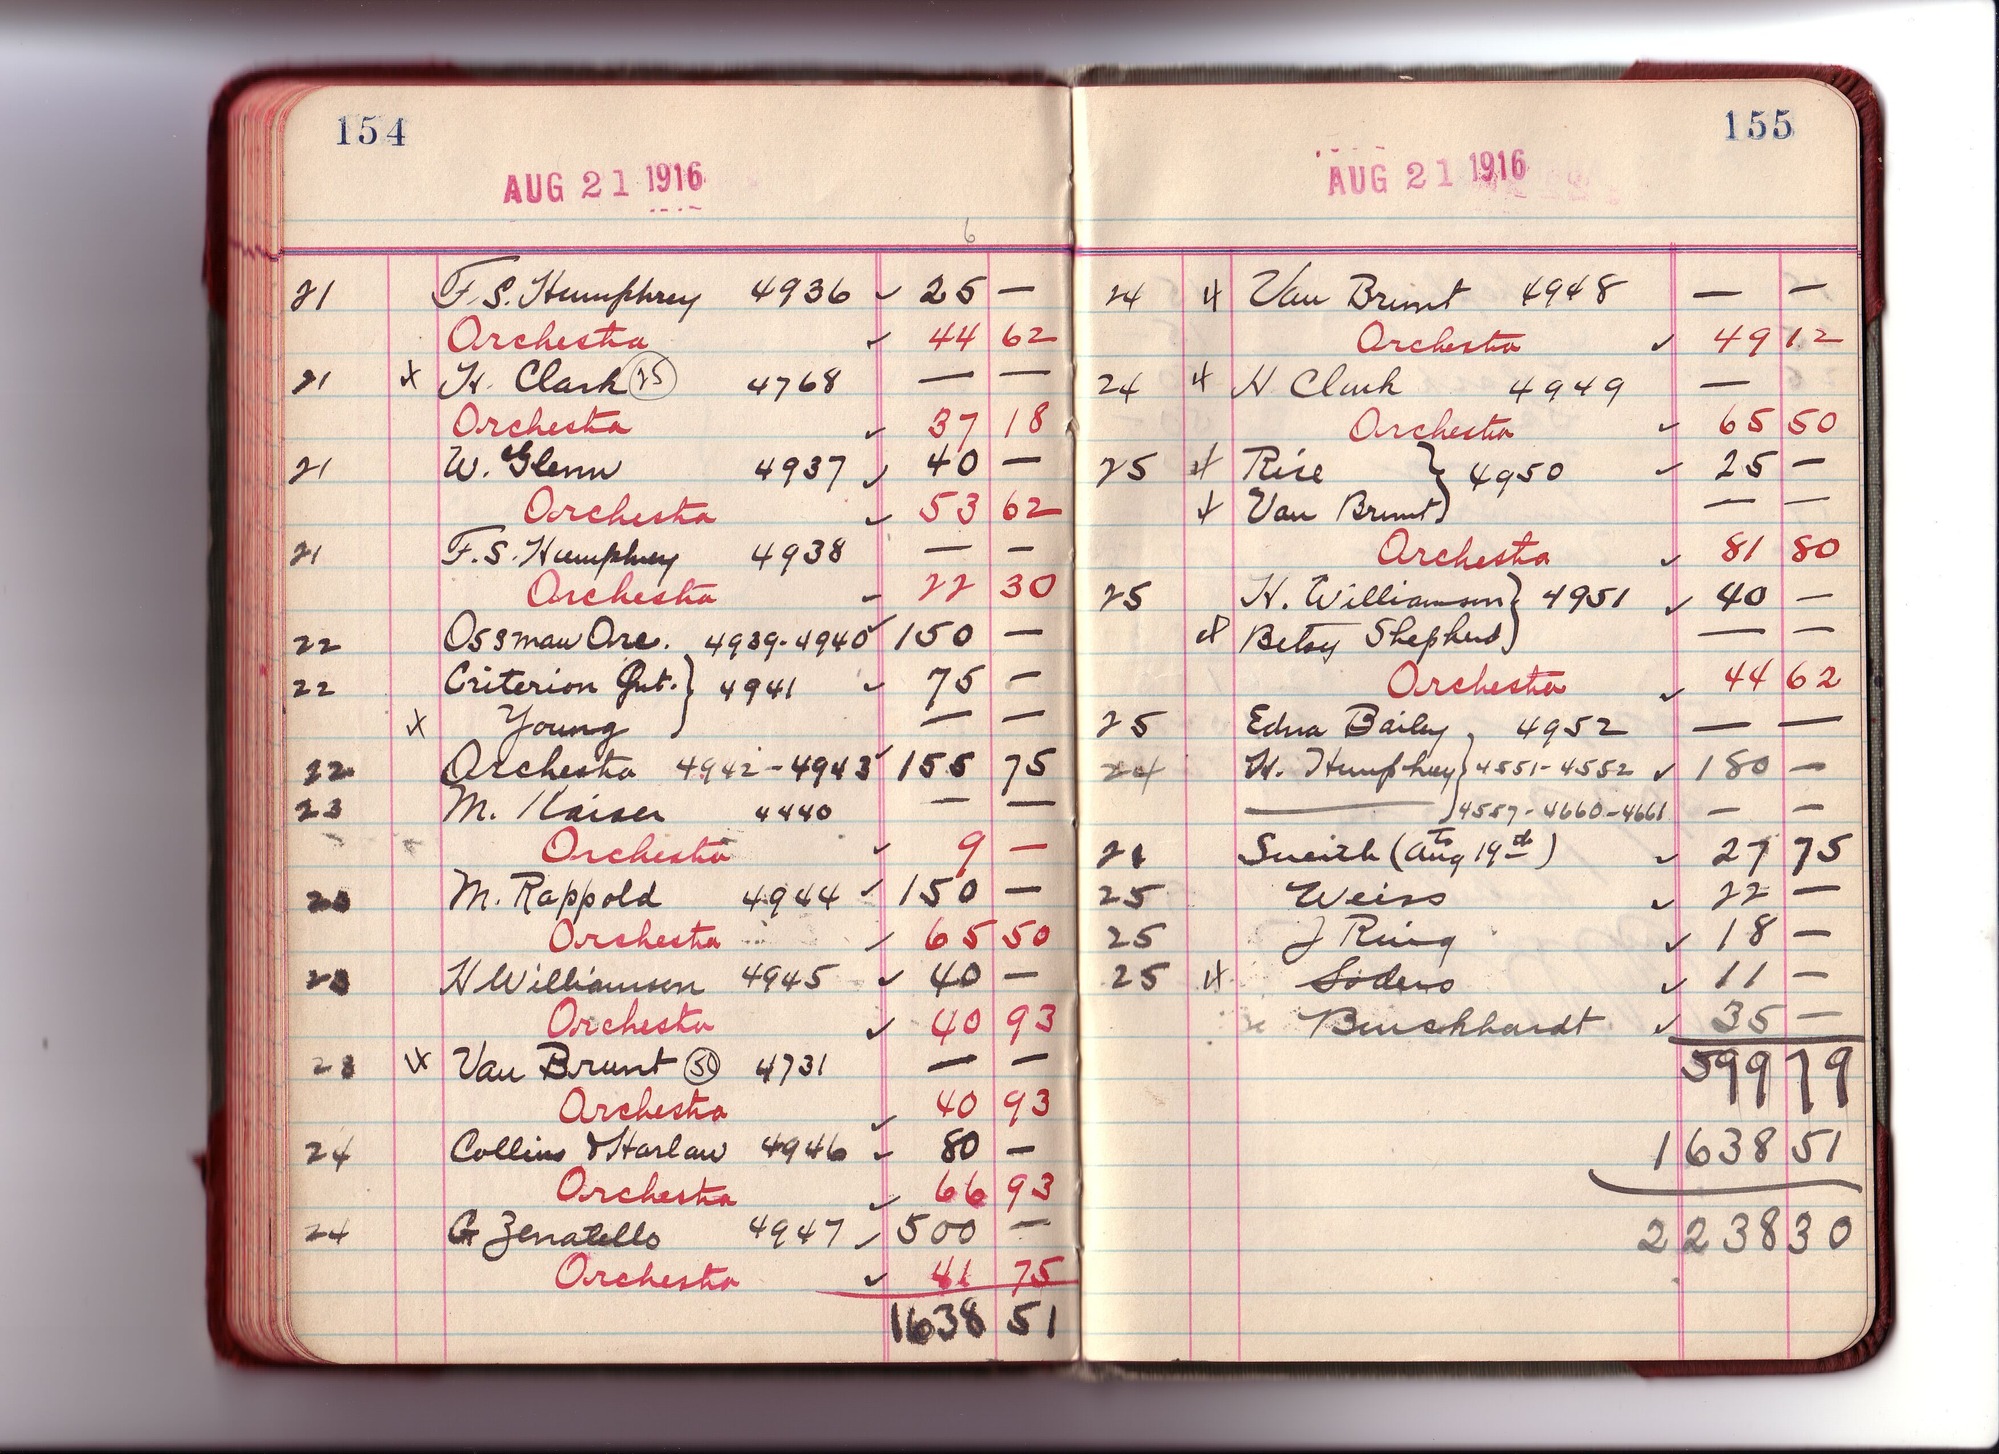 154
AUG 21 1916
6
21 F.S. Humphrey 4936 ✓ 25 —
Orchestra ✓ 44 62
21 x H. Clark (25) 4768 — —
Orchestra ✓ 37 18
21 W. Glenn 4937 ✓ 40 —
Orchestra ✓ 53 62
21 F.S. Humphrey 4938 — —
Orchestra ✓ 22 30
22 Ossman Orc. 4939-4940 ✓ 150 —
22 Criterion Qut. } 4941 ✓ 75 —
x Young — —
22 Orchestra 4942-4943 ✓ 155 75
23 M. Kaiser 4440 — —
Orchestra ✓ 9 —
M. Rappold 4944 ✓ 150 —
Orchestra ✓ 65 50
H Williamson 4945 ✓ 40 —
Orchestra ✓ 40 93
x Van Brunt (50) 4731 — —
Orchestra ✓ 40 93
24 Collins & Harlan 4946 ✓ 80 —
Orchestra ✓ 66 93
24 G Zenatello 4947 ✓ 500 —
Orchestra ✓ 41 75
1638 51
155
AUG 21 1916
24 x Van Brunt 4948 — —
Orchestra ✓ 49 12
24 x H Clark 4949 —
Orchestra ✓ 65 50
25 x Rise } 4950 ✓ 25 —
x Van Brunt — —
Orchestra ✓ 81 80
25 H. Williamson } 4951 ✓ 40 —
x Betsy Shepherd — —
Orchestra ✓ 44 62
25 Edna Bailey 4952 — —
24 H. Humphrey } 4551-4552 ✓ 180 —
4557-4660-4661 — —
21 (to Aug 19th) ✓ 27 75
25 Weiss ✓ 22 —
25 J Ring ✓ 18 —
25 x Soders ✓ 11 —
Burckhardt ✓ 35 —
599 79
1638 51
2238 30